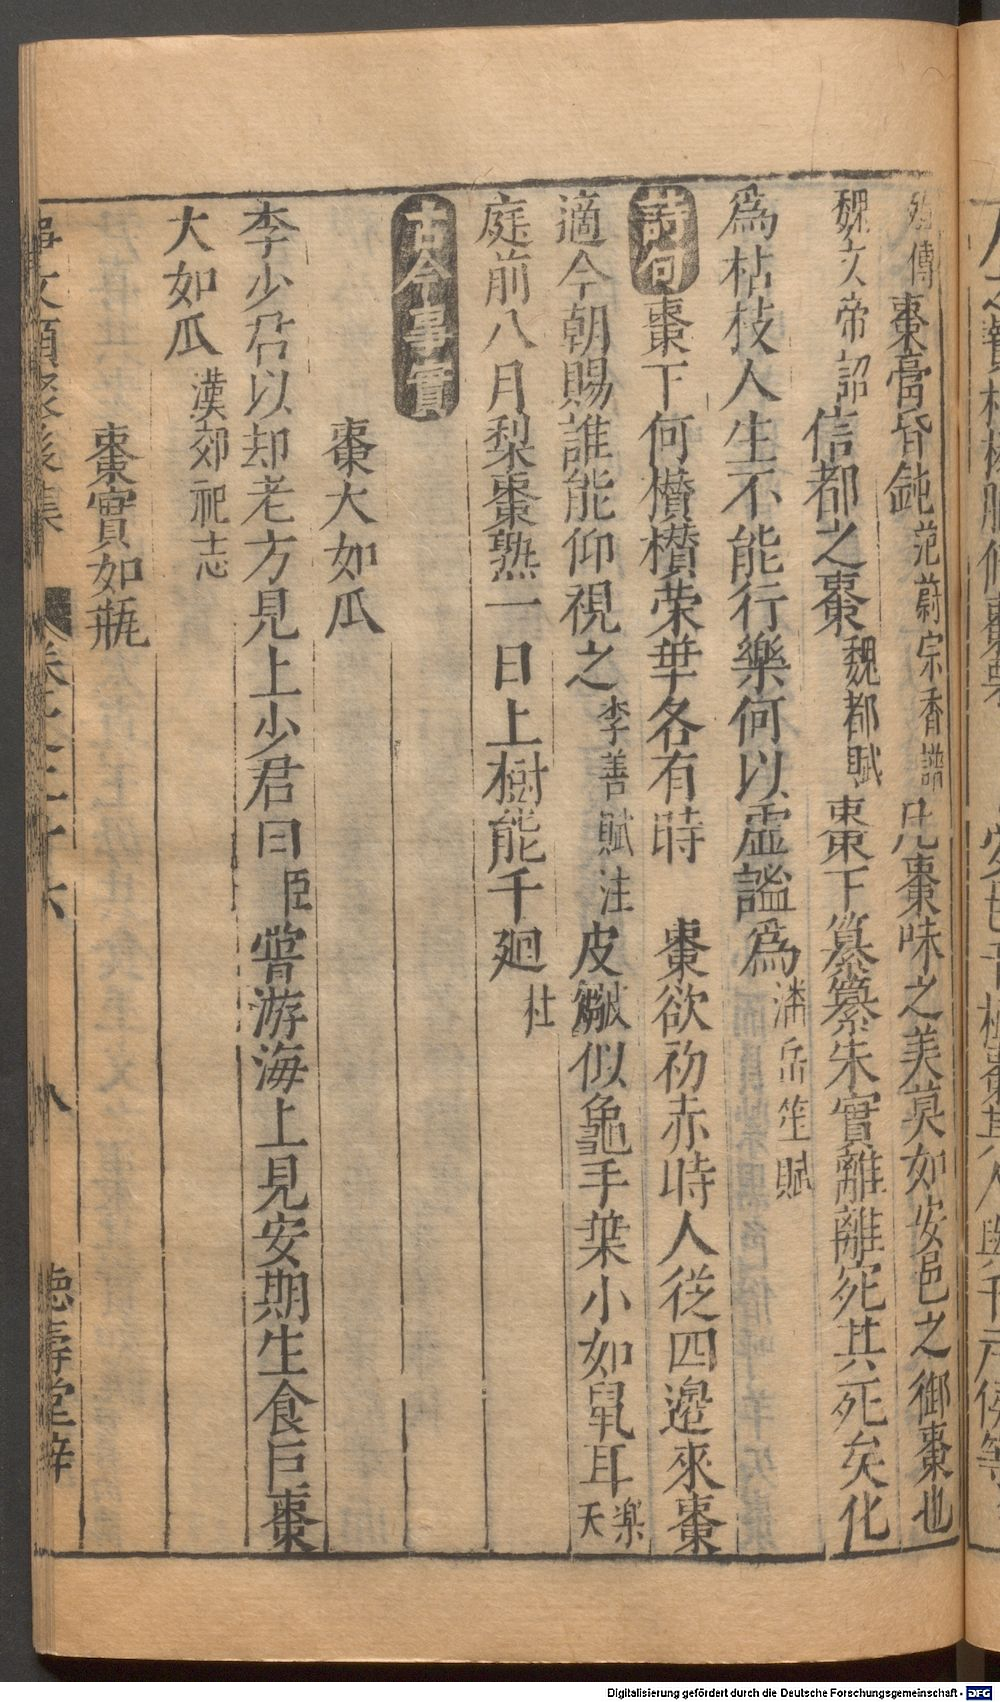 傳棗膏昏鈍范蔚宗香譜凡棗味之美莫如安邑之御棗也
魏文帝詔信都之棗魏都賦棗下纂纂朱實離離宛其死矣化
爲枯枝人生不能行樂何以虛謚爲潘岳笙賦
詩句棗下何櫕櫕荣華各有時 棗欲初赤時人從四邉來棗
適今朝賜誰能仰視之李善賦注皮皺似龜手葉小如鼠耳樂天
庭前八月梨棗熟一日上樹能千廻杜
古今事實
棗大如瓜
李少君以却老方見上少君曰臣嘗游海上見安期生食巨棗
大如瓜漢郊祀志
棗實如瓶
事文類聚後集 卷之二十六 八 德壽堂梓
Digitalisierung gefördert durch die Deutsche Forschungsgemeinschaft - DFG